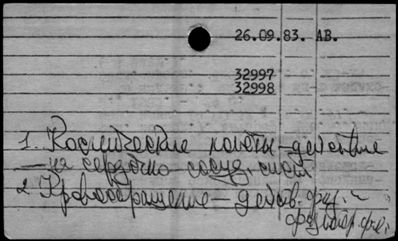 26.09.83. АВ.
32997
32998
1. Космические полеты – действие
– на сердечно-сосуд. сист.
2. Кровообращение – действ. физ.